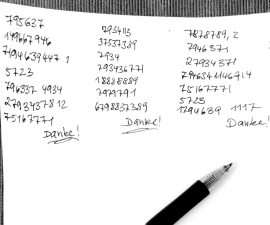 795637
149667946
71944639447 1
5723
796337 4934
2793437812
75167771
Danke!
7934113
37537389
7934
793436771
18888889
7979791
6798837389
Danke!
7878789,2
7946371
27934371
75167771
5723
1794639 1117
Danke!